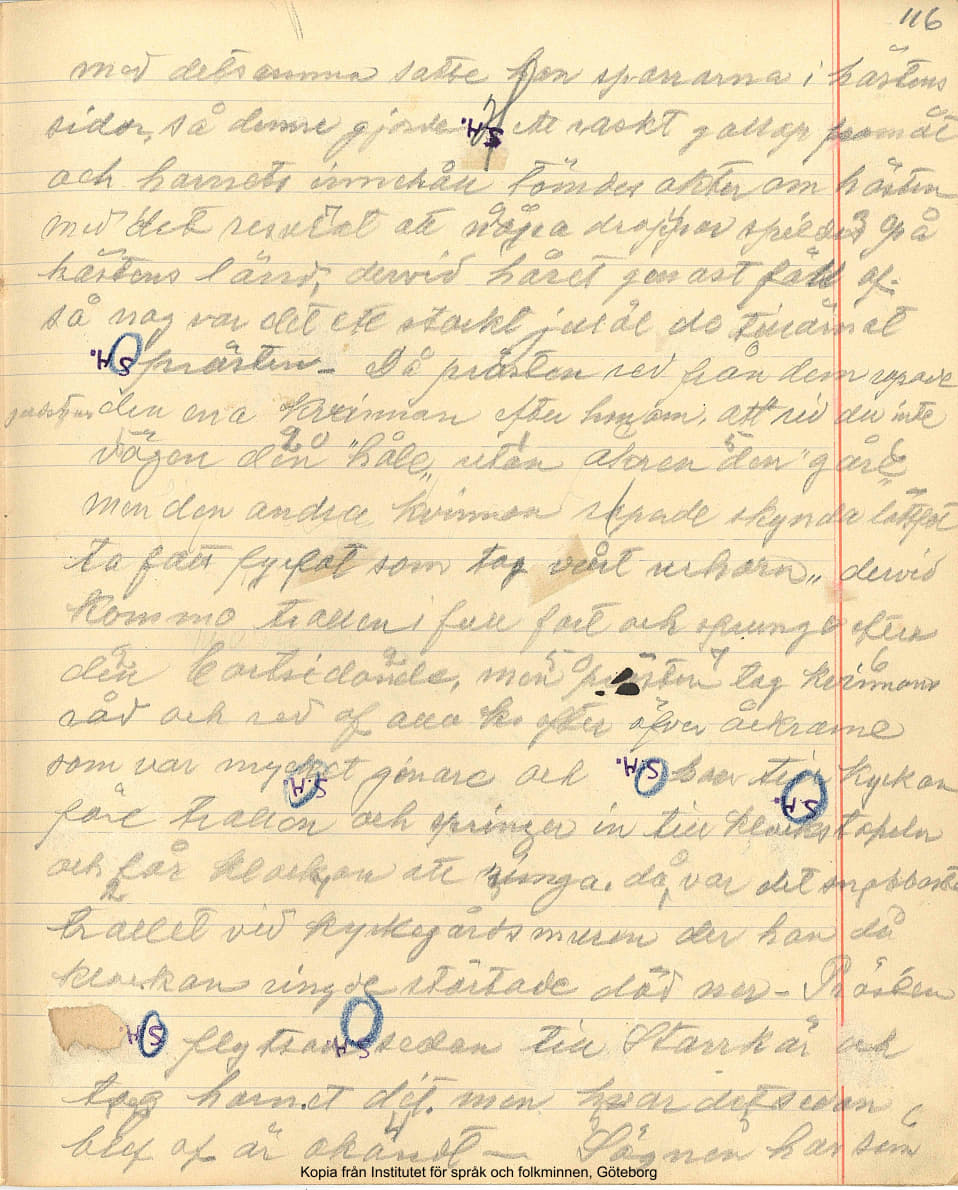 116
med detsamma satte han sporrarna i hästens
sidor, så denne gjorde ett raskt gallop framåt
S.H.
och hornets innehåll tömdes akter om hästen
med det resultat att några droppar spildes på
hästens länd, dervid håret genast fäll af.
så nog var det ett starkt julöl de tillärnat
S.H. prästen – Då prästen red från dem ropade
den ena kvinnan efter honom, att rid du inte
vägen den "håle„ utan åkren den "gårle„
men den andra kvinnan ropade skynda lättfot
ta fatt fyrfot som tog vårt urhorn„ dervid
kommo trollen i full fart och sprungo efter
den bortridande, men prästen tog kvinnans
råd och red af alla k. efter öfver åkrarne
som var mycket genare och S.H. kom till kyrkan
S.H. S.H.
före trollen och springer in till klockstapeln
och får klockan att ringa. då var det snabbaste
trollet vid kyrkogårdsmuren der han då
klockan ringde störtade död ner – Prästen
S.H. flyttade S.H. sedan till Starrkär och
tog hornet dit. men hvar det sedan
blef af är okändt – Sägnen har som
Kopia från Institutet för språk och folkminnen, Göteborg